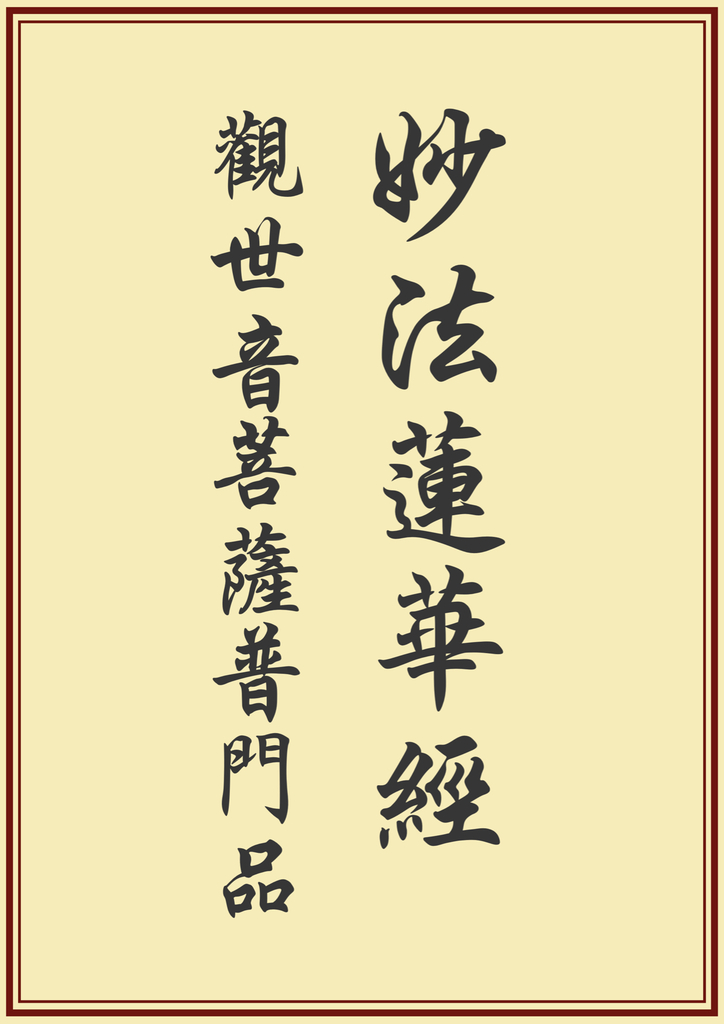 妙法蓮華經
觀世音菩薩普門品